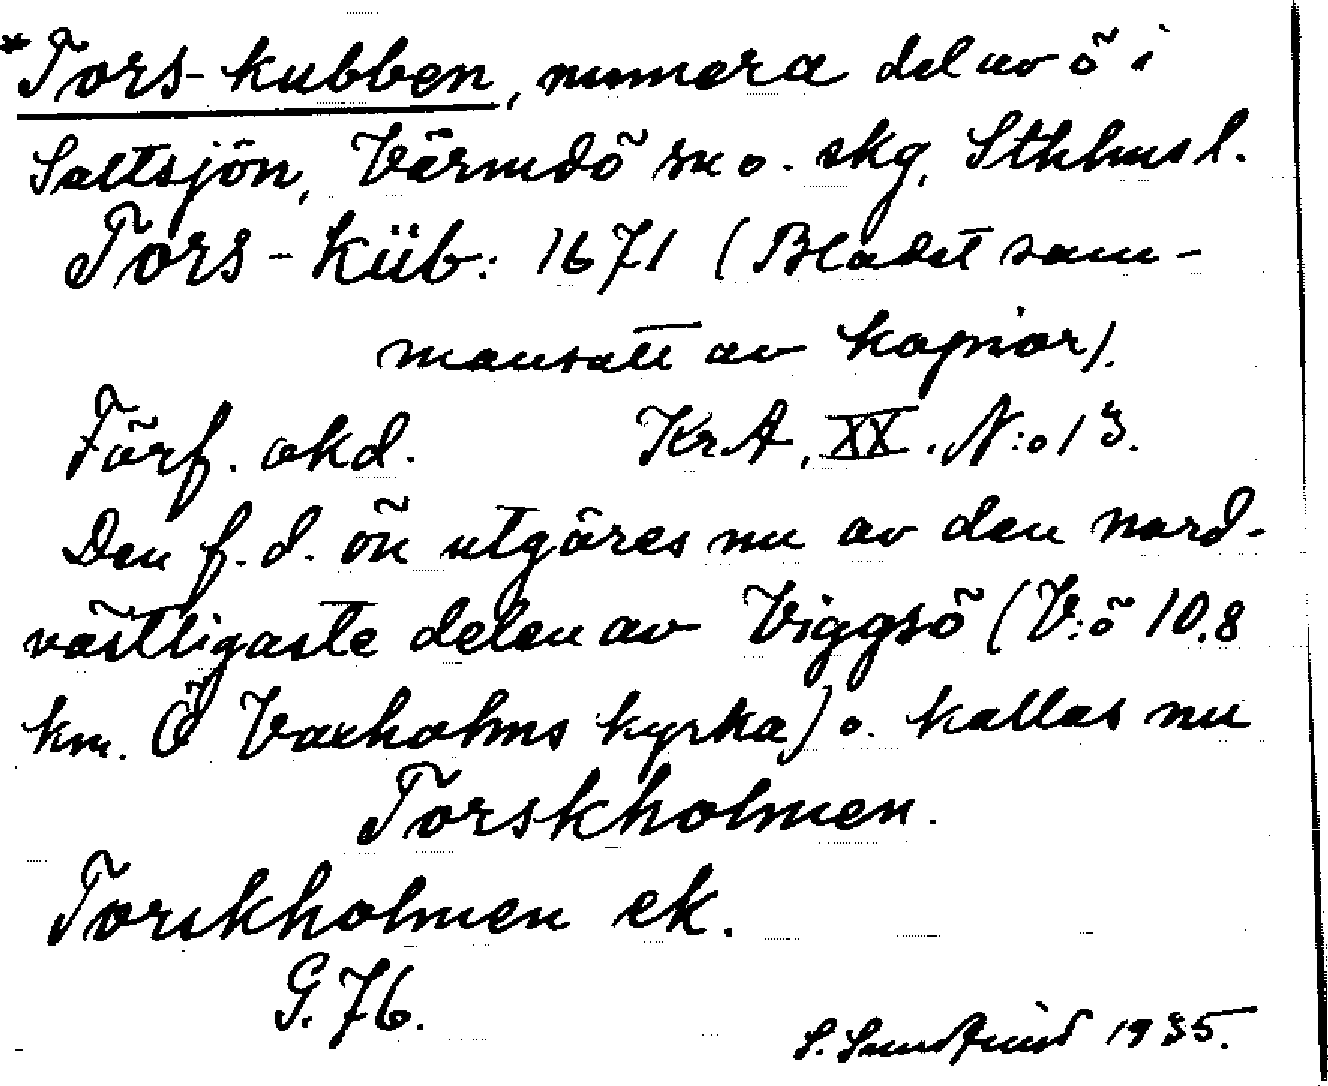 *Tors-kubben, numera del av ö i
Saltsjön, Värmdö sn o. skg, Sthlms l.
Tors-Küb: 1671 (Bladet sam-
mansatt av kopior).
Förf. okd. KrA, XX. N:o 13.
Den f.d. ön utgöres nu av den nord-
västligaste delen av Viggsö (V:ö 10,8
km. Ö Vaxholms kyrka) o. kallas nu
Torskholmen.
Torskholmen ek.
G. 76.
S. 1935.